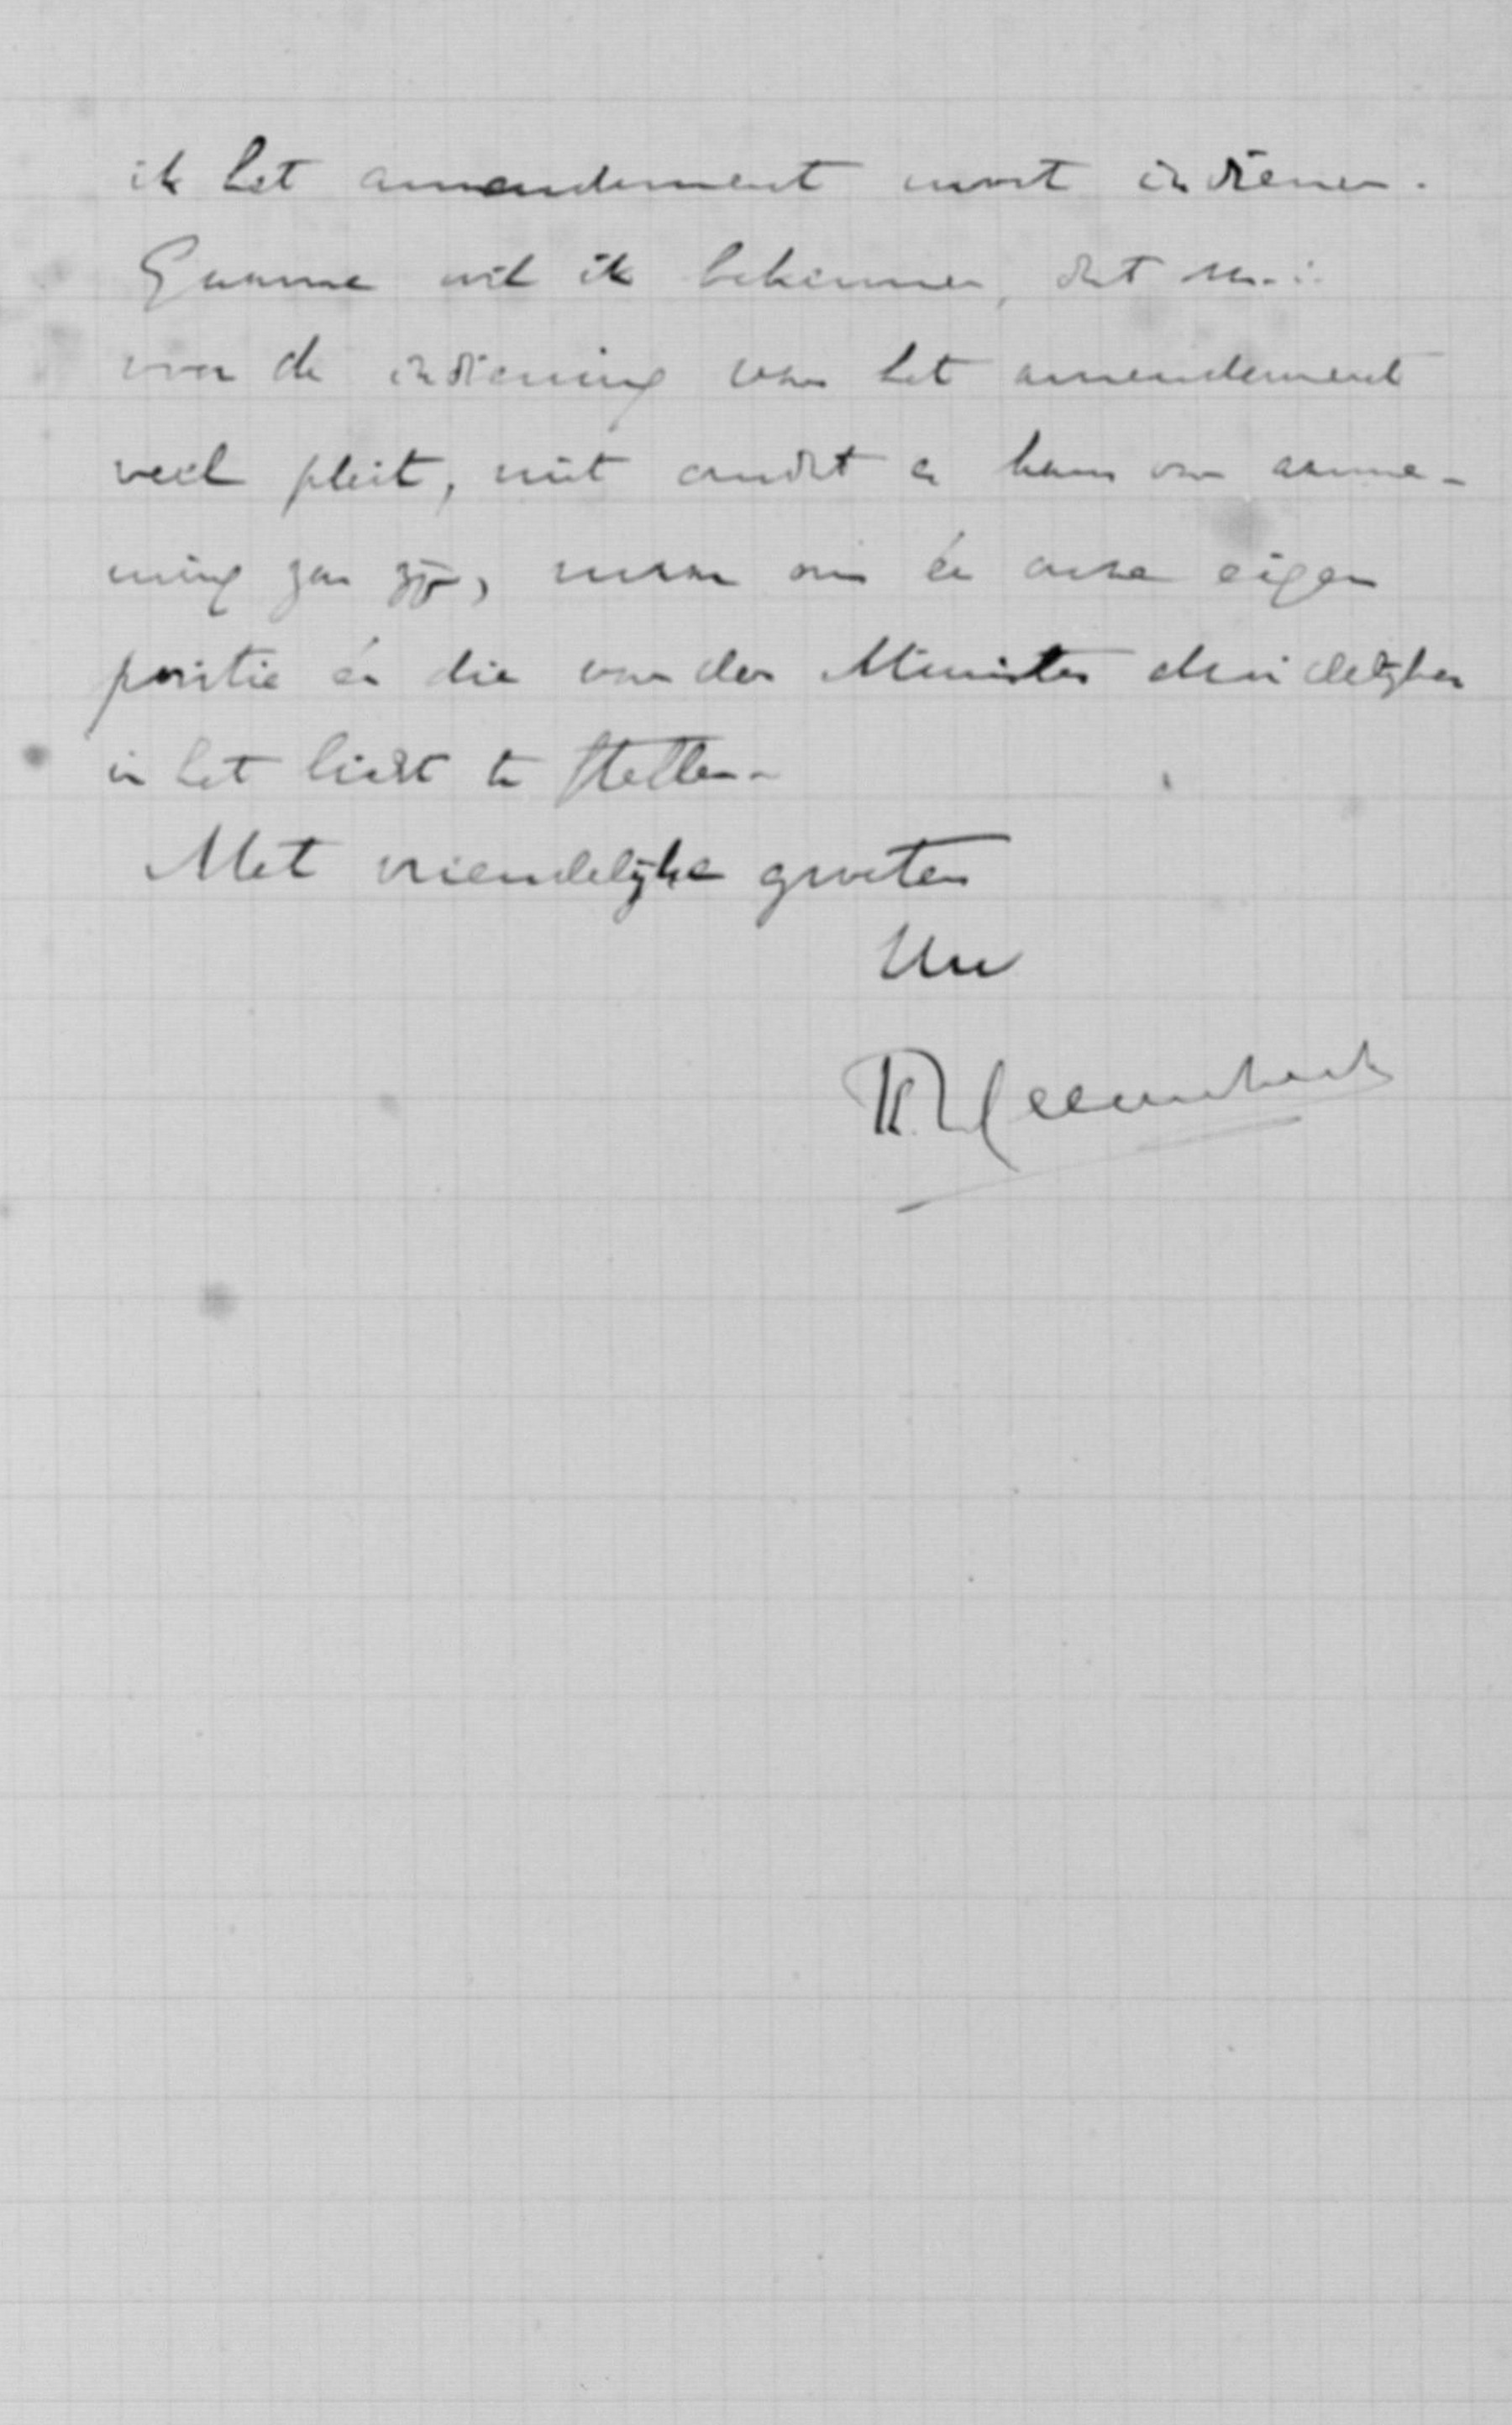 ik het amendement moet indienen.
Gaarne wil ik bekennen, dat m.i.
voor de indiening van het amendement
veel pleit, niet omdat er kans van aanne-
ming zou zijn, maar om én onze eigen
positie én die van den Minister duidelijker
in het licht te stellen.
Met vriendelijke groeten
Uw